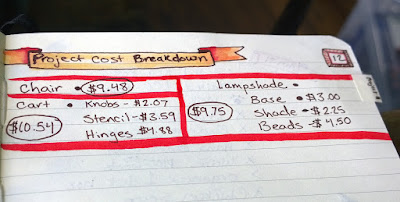 Project Cost Breakdown
12
Chair • $9.48
Cart • Knobs - $2.07
$10.54 Stencil - $3.59
Hinges $4.88
Lampshade •
Base • $3.00
$9.75 Shade - $2.25
Beads - $4.50